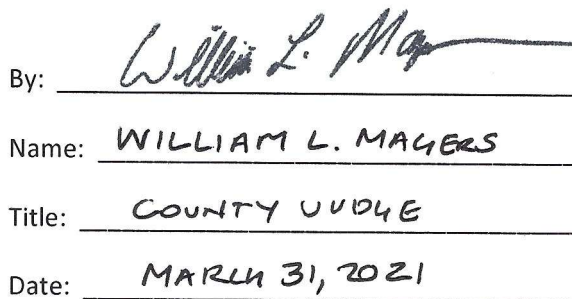 By: William L. Magers
Name: WILLIAM L. MAGERS
Title: COUNTY JUDGE
Date: MARCH 31, 2021